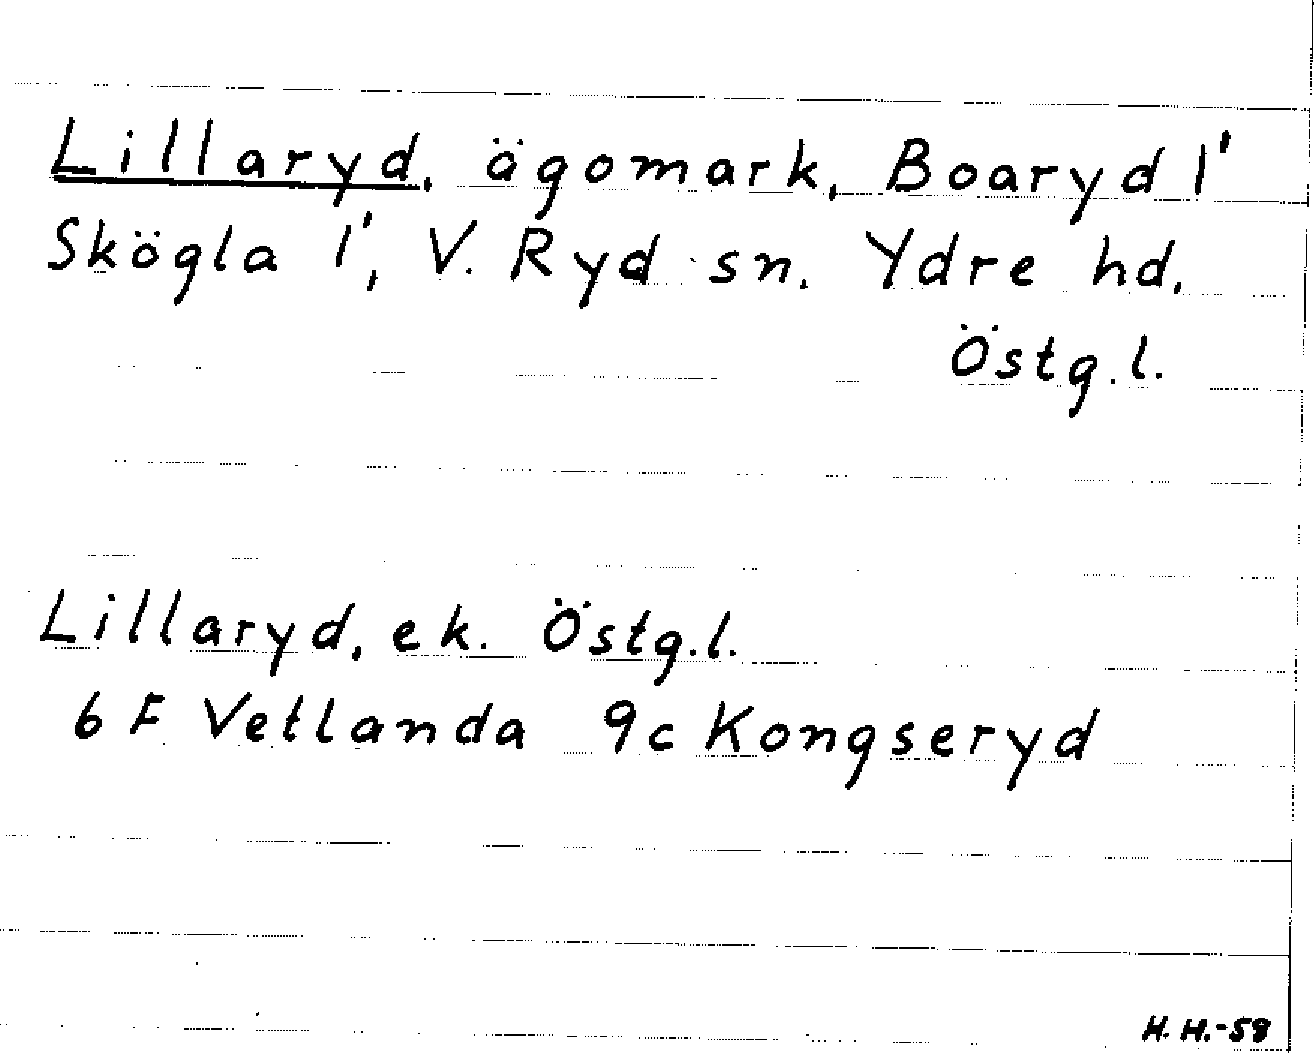 Lillaryd, ägomark, Boaryd 1'
Skögla 1', V. Ryd sn. Ydre hd.
Östg.l.
Lillaryd, ek. Östg.l.
6 F Vetlanda 9c Kongseryd
H.H.-58